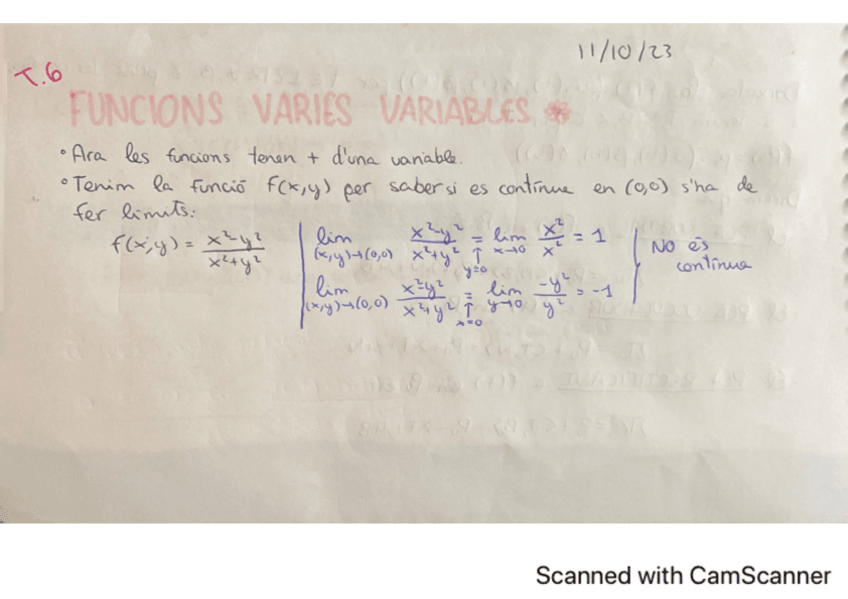 11/10/23
T.6
FUNCIONS VARIES VARIABLES *
• Ara les funcions tenen + d'una variable.
• Tenim la funció f(x,y) per saber si es contínua en (0,0) s'ha de
fer límits:
f(x,y) = x²-y² / x²+y²
lim (x,y)→(0,0) x²-y² / x²+y² = ↑ y=0 lim x→0 x² / x² = 1
lim (x,y)→(0,0) x²-y² / x²+y² = ↑ x=0 lim y→0 -y² / y² = -1
No és
contínua
Scanned with CamScanner